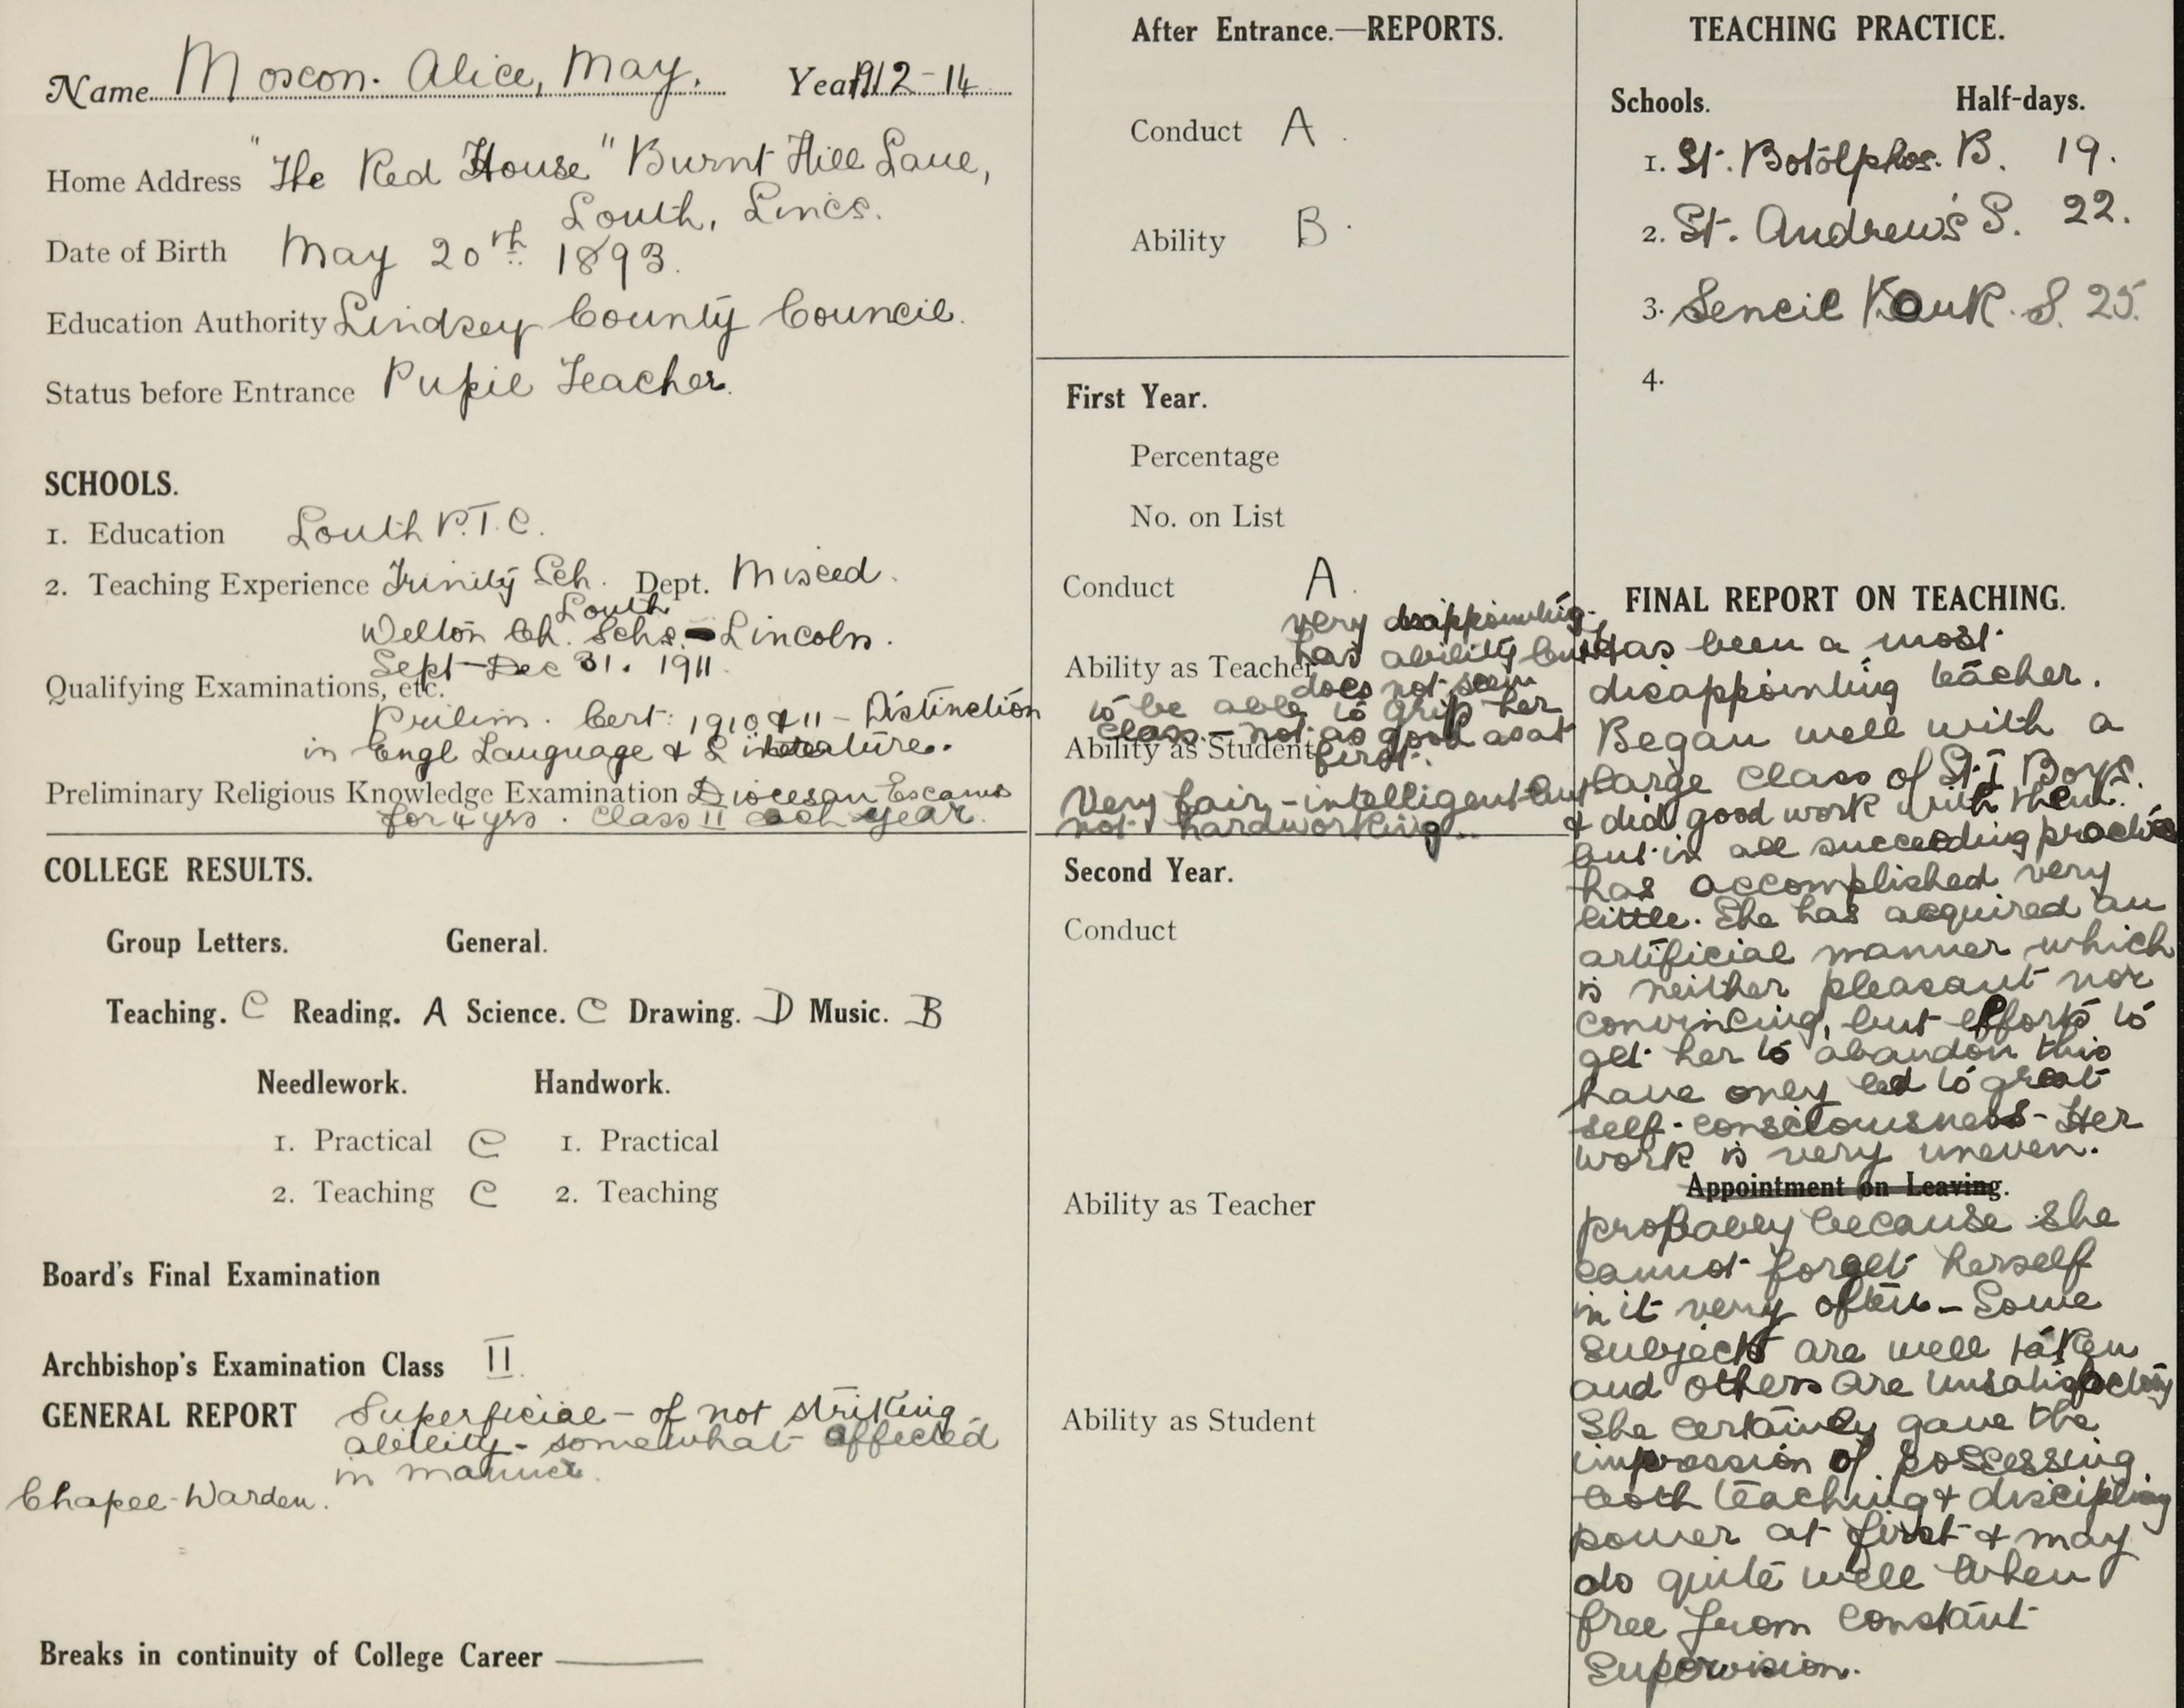 Name Moxon. Alice, May. Year 1912-14
Home Address "The Red House" Burnt Hill Lane,
Louth, Lincs.
Date of Birth May 20th 1893.
Education Authority Lindsey County Council.
Status before Entrance Pupil Teacher.
SCHOOLS.
1. Education Louth P.T.C.
2. Teaching Experience Trinity Sch. Dept. Mixed.
Louth
Welton Ch. Schs. - Lincoln.
Sept-Dec 31. 1911.
Qualifying Examinations, etc.
Prelim. Cert: 1910 & 11 - Distinction
in Engl Language & Literature.
Preliminary Religious Knowledge Examination Diocesan Exams
for 4 yrs. Class II each year.
COLLEGE RESULTS.
Group Letters. General.
Teaching. C Reading. A Science. C Drawing. D Music. B
Needlework. Handwork.
1. Practical C 1. Practical
2. Teaching C 2. Teaching
Board's Final Examination
Archbishop's Examination Class II.
GENERAL REPORT Superficial - of not striking
ability - somewhat affected
in manner.
Chapel-Warden.
Breaks in continuity of College Career
After Entrance.—REPORTS.
Conduct A.
Ability B.
First Year.
Percentage
No. on List
Conduct A.
very disappointing.
Ability as Teacher has ability but
does not seem
to be able to grip her
class - not as good as at
Ability as Student first.
Very fair - intelligent but
not hardworking.
Second Year.
Conduct
Ability as Teacher
Ability as Student
TEACHING PRACTICE.
Schools. Half-days.
1. St. Botolphs. B. 19.
2. St. Andrew's S. 22.
3. Sencil S. 25.
4.
FINAL REPORT ON TEACHING.
Has been a most
disappointing teacher.
Began well with a
large class of St. I Boys.
& did good work with them.
but in all succeeding practice
has accomplished very
little. She has acquired an
artificial manner which
is neither pleasant nor
convincing, but efforts to
get her to abandon this
have only led to great
self-consciousness - Her
work is very uneven.
Appointment on Leaving.
probably because she
cannot forget herself
in it very often - Some
subjects are well taken
and others are unsatisfactory
She certainly gave the
impression of possessing
both teaching & disciplinary
power at first & may
do quite well when
free from constant
supervision.